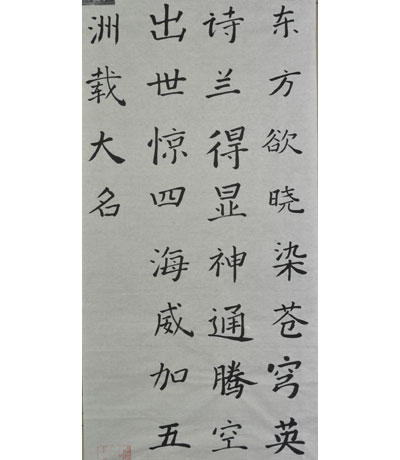 东方欲晓染苍穹英
诗兰得显神通腾空
出世惊四海威加五
洲载大名